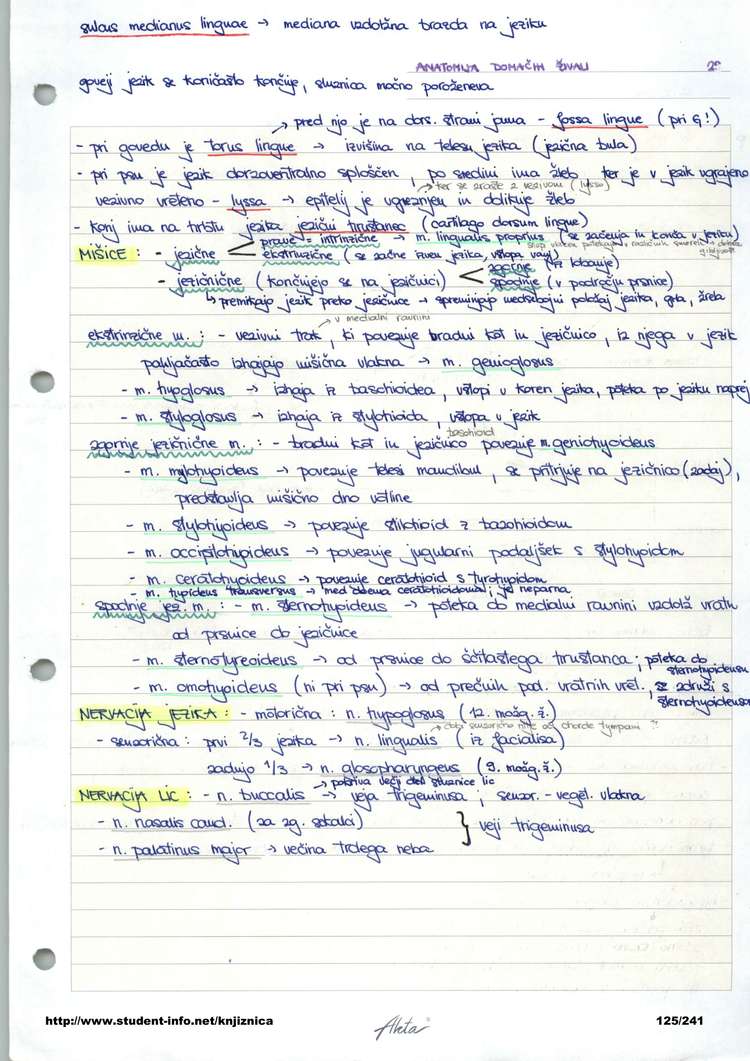 sulcus medianus linguae → mediana vzdolžna brazda na jeziku
ANATOMIJA DOMAČIH ŽIVALI
goveji jezik se koničasto končuje, sluznica močno poroženeva
→ pred njo je na dors. strani jama - fossa lingue (pri G!)
- pri govedu je torus lingue → izvišina na telesu jezika (jezična bula)
- pri psu je jezik dorzoventralno sploščen, po sredini ima žleb, ter je v jezik vgrajeno
→ ter se zraste z vezivom (lyssa)
vezivno vreteno - lyssa → epitelij je ugreznjen in oblikuje žleb
- konj ima na hrbtu jezika jezični hrustanec (cartilago dorsum lingue)
MIŠICE: - jezične < prave = intrinzične → m. lingualis proprius (se začenja in konča v jeziku)
snop vlaken potekajo v različnih smereh → dobra gibljivost
ekstrinzične (se začne izven jezika, vstopa vanj)
- jezičnične (končujejo se na jezičnici) < zgornje (iz lobanje)
spodnje (v področju prsnice)
↳ premikajo jezik preko jezičnice → spreminjajo medsebojni položaj jezika, grla, žrela
→ v medialni ravnini
ekstrinzične m.: - vezivni trak, ki povezuje bradni kot in jezičnico, iz njega v jezik
pahljačasto izhajajo mišična vlakna → m. genioglosus
- m. hyoglosus → izhaja iz basihioidea, vstopi v koren jezika, poteka po jeziku naprej
- m. styloglosus → izhaja iz stylohioida, vstopa v jezik
basohioid
zgornje jezičnične m.: - bradni kot in jezičnico povezuje m. geniohyoideus
- m. mylohyoideus → povezuje telesi mandibul, se pritrjuje na jezičnico (zadaj),
predstavlja mišično dno ustline
- m. stylohyoideus → povezuje stilohioid z bazohioidom
- m. occipitohyoideus → povezuje jugularni podaljšek s stylohyoidom
- m. ceratohyoideus → povezuje ceratohioid s tyrohyoidom
- m. hyoideus transversus → med obema ceratohioidoma, je neparna
spodnje jez. m.: - m. sternohyoideus → poteka ob medialni ravnini vzdolž vratu
od prsnice do jezičnice
- m. sternotyreoideus → od prsnice do ščitastega hrustanca; poteka ob sternohyoideusu
- m. omohyoideus (ni pri psu) → od prečnih pod. vratnih vret., se združi s sternohyoideusom
NERVACIJA JEZIKA: - motorična: n. hypoglosus (12. možg. ž.)
→ dobi senzorične niti od chorde tympani
- senzorična: prvi 2/3 jezika → n. lingualis (iz facialisa)
zadnjo 1/3 → n. glosopharyngeus (9. možg. ž.)
→ pokriva večji del sluznice lic
NERVACIJA LIC: - n. buccalis → veja trigeminusa; senzor. - veget. vlakna
- n. nasalis caud. (za zg. sekalci) } veji trigeminusa
- n. palatinus major → večina trdega neba
http://www.student-info.net/knjiznica
Aleta
125/241